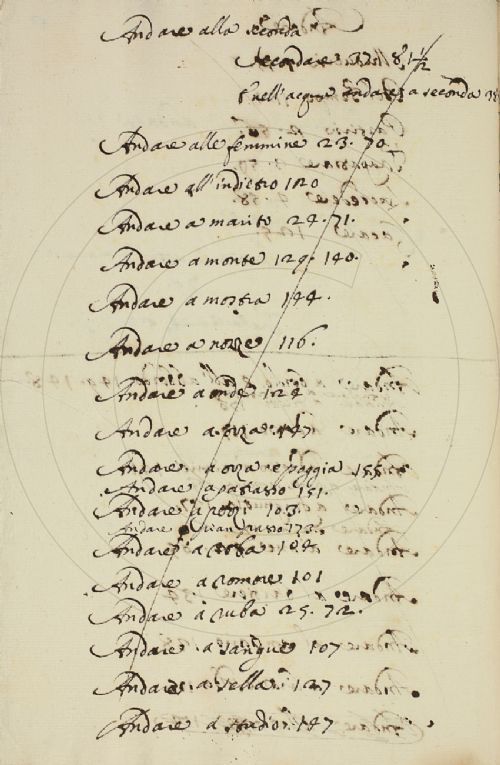 Andare alla seconda
Secondare 32. 81½
e nell'acqua andare a seconda
Andare alle femmine 23. 70.
Andare all'indietro 120
Andare a marito 24. 71.
Andare a monte 129. 140.
Andare a mostra 144.
Andare a nozze 116.
Andare a onde 124
Andare a orza 147
Andare a orza e poggia 155
Andare a patrasso 151.
Andare a 103.
Andare a passo 173.
Andare a 184
Andare a romore 101
Andare a ruba 25. 72.
Andare a sangue 107
Andare a sella 127
Andare a studio 147